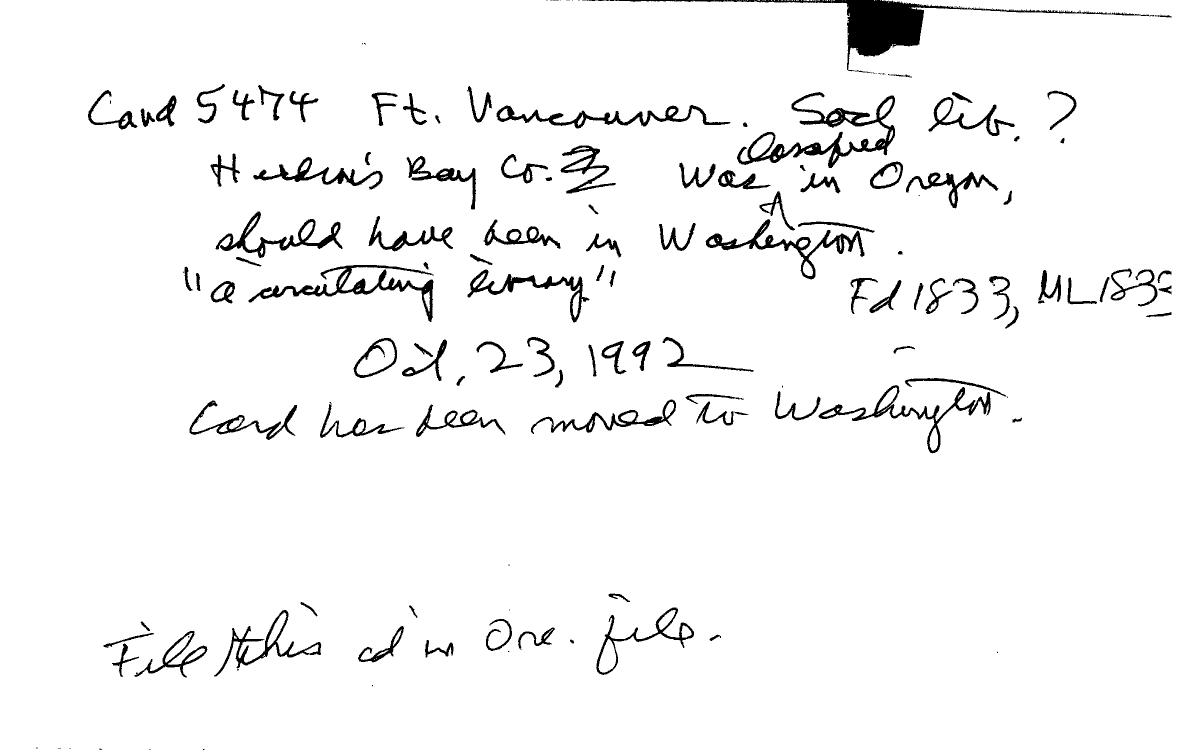 Card 5474 Ft. Vancouver. Socl lib. ?
Hudson's Bay Co. Was classified in Oregon,
should have been in Washington.
"a circulating library"
Fd 1833, ML 183
Oct, 23, 1992
Card has been moved to Washington.
File this cd in Ore. file.